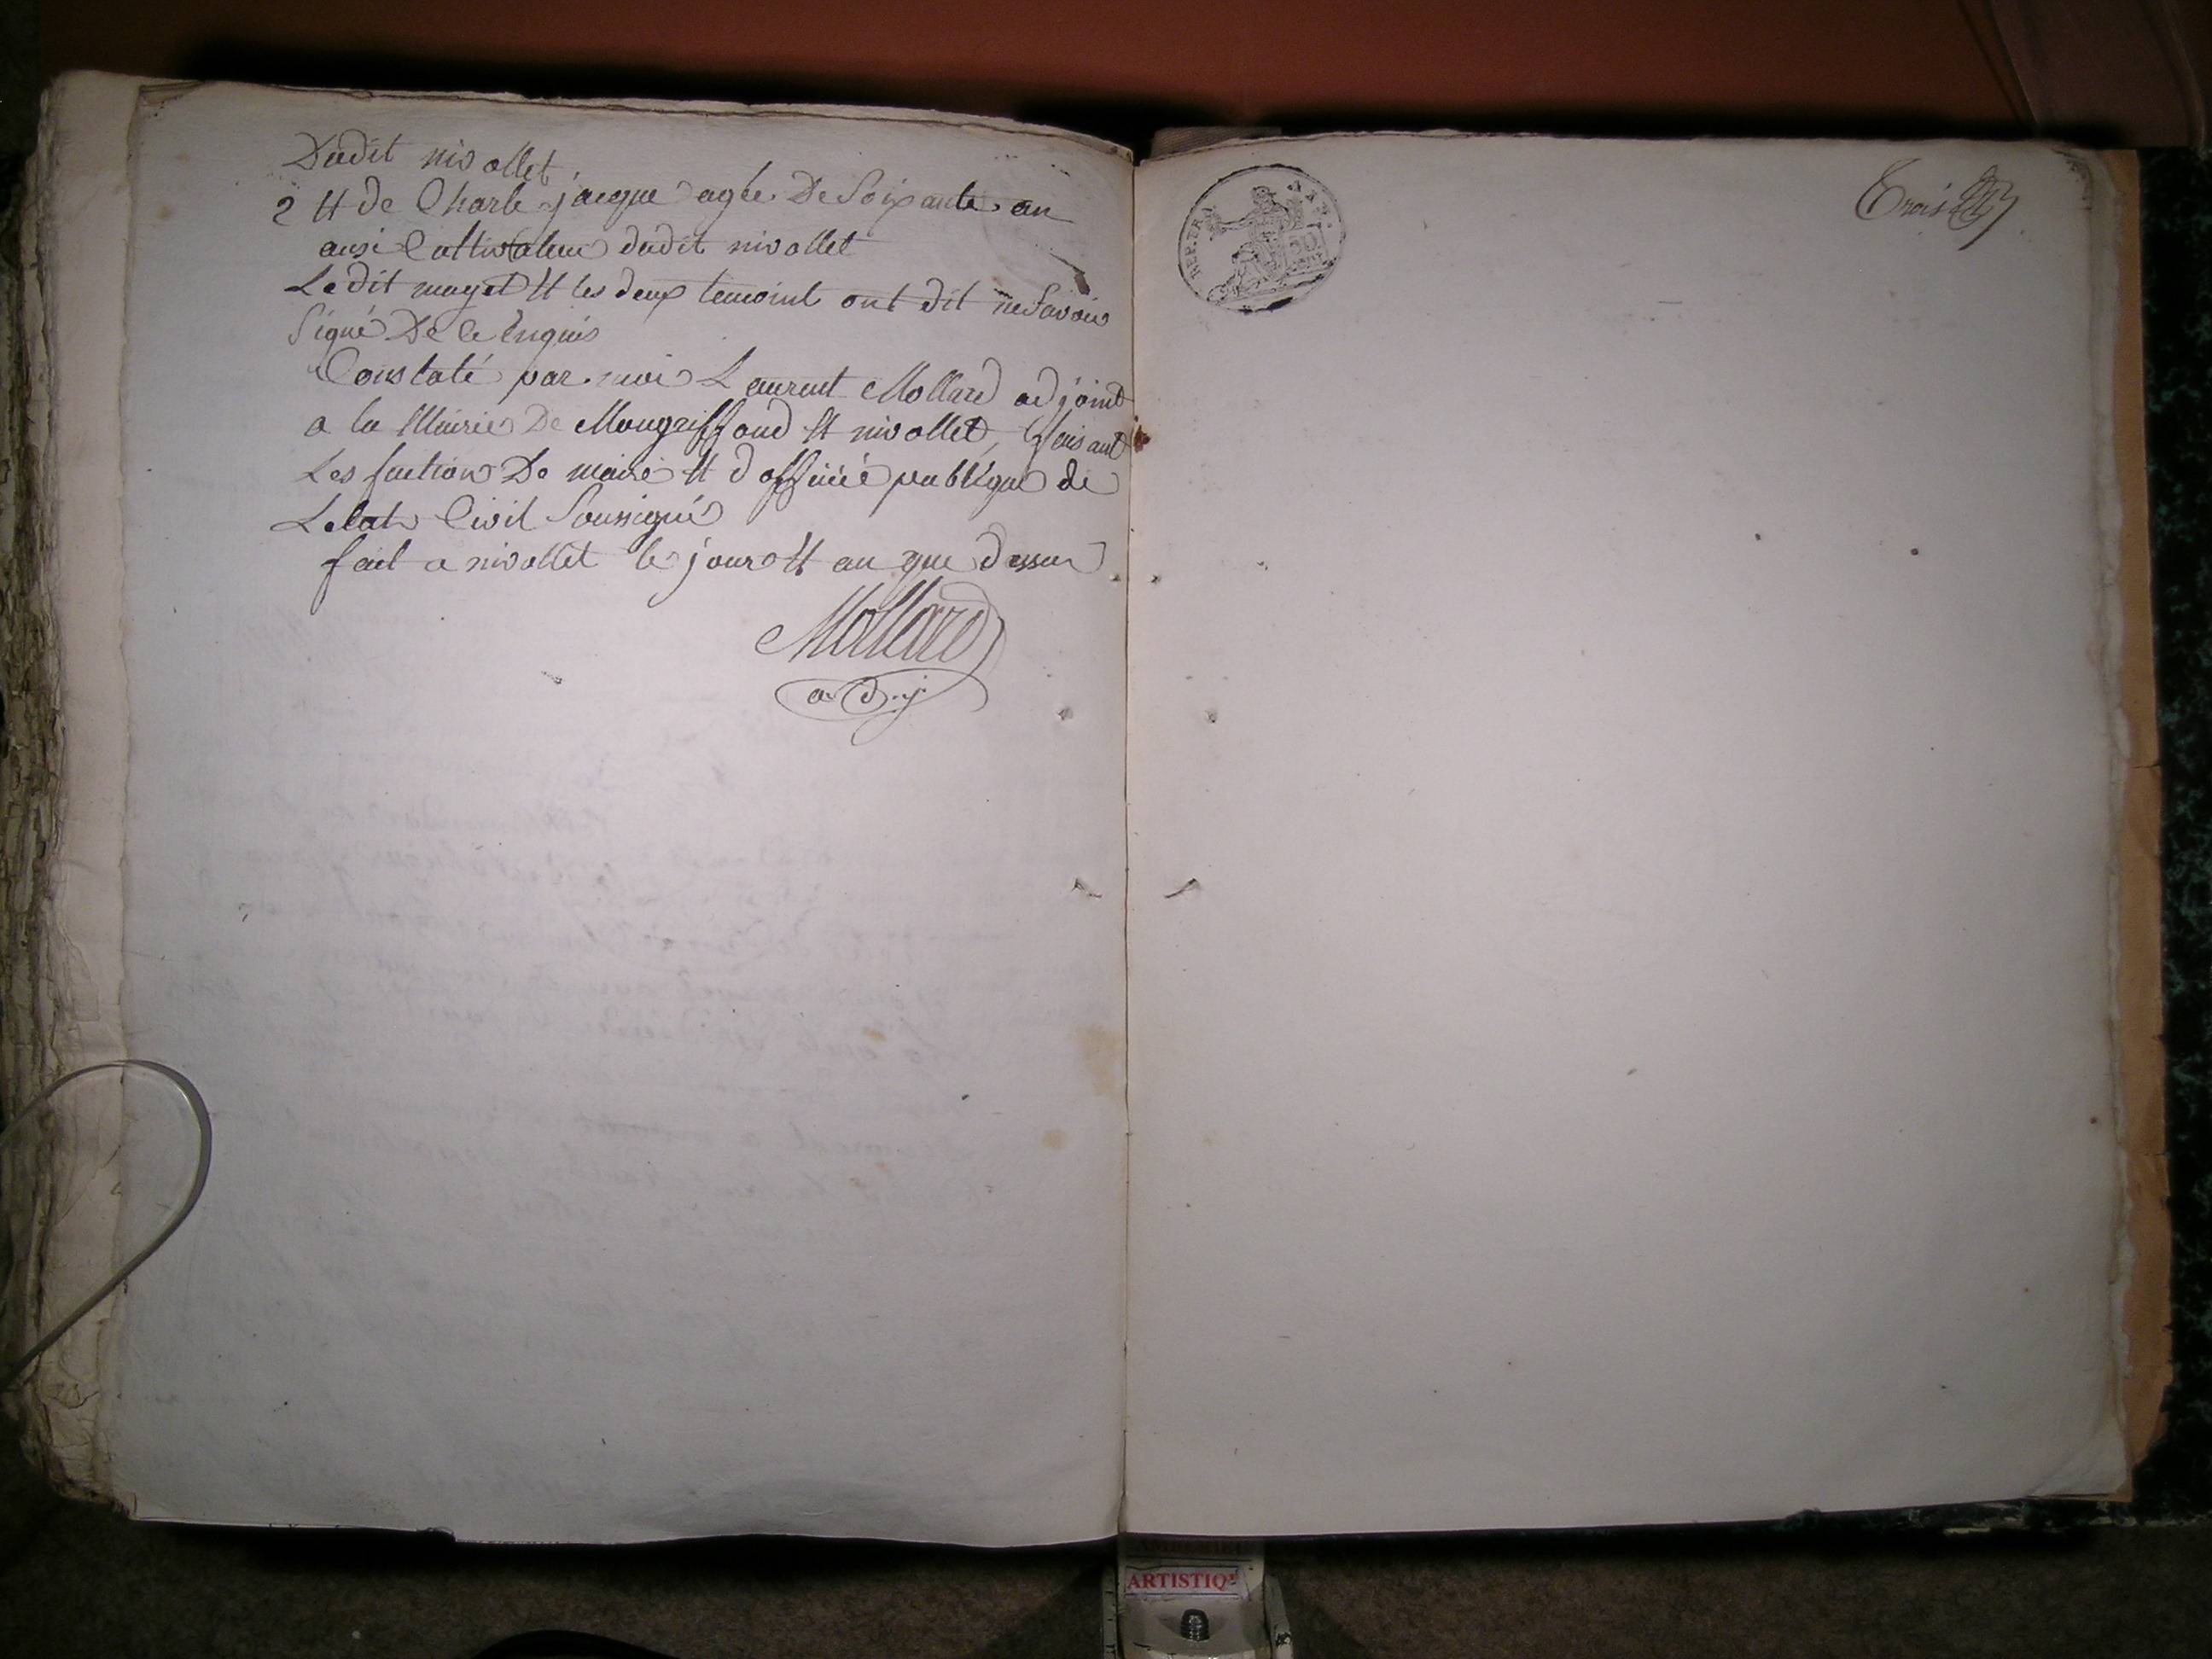 Dudit nivollet
2 et de Charle jacque agée De Soixante an
ausi Cultivateur dudit nivollet
Le dit mayet et les deux temoint ont dit ne Savoir
Signé De ce Enquis
Constaté par moi Laurent Mollard adjoint
a la Mairie De Mongriffond et nivollet, faisant
Les fuction De maire et d'officié publique de
L'etat Civil Soussigné
fait a nivollet le jour et an que dessus
Mollard
adj.
REP. FRA.
50
Trois
ARTISTIQ